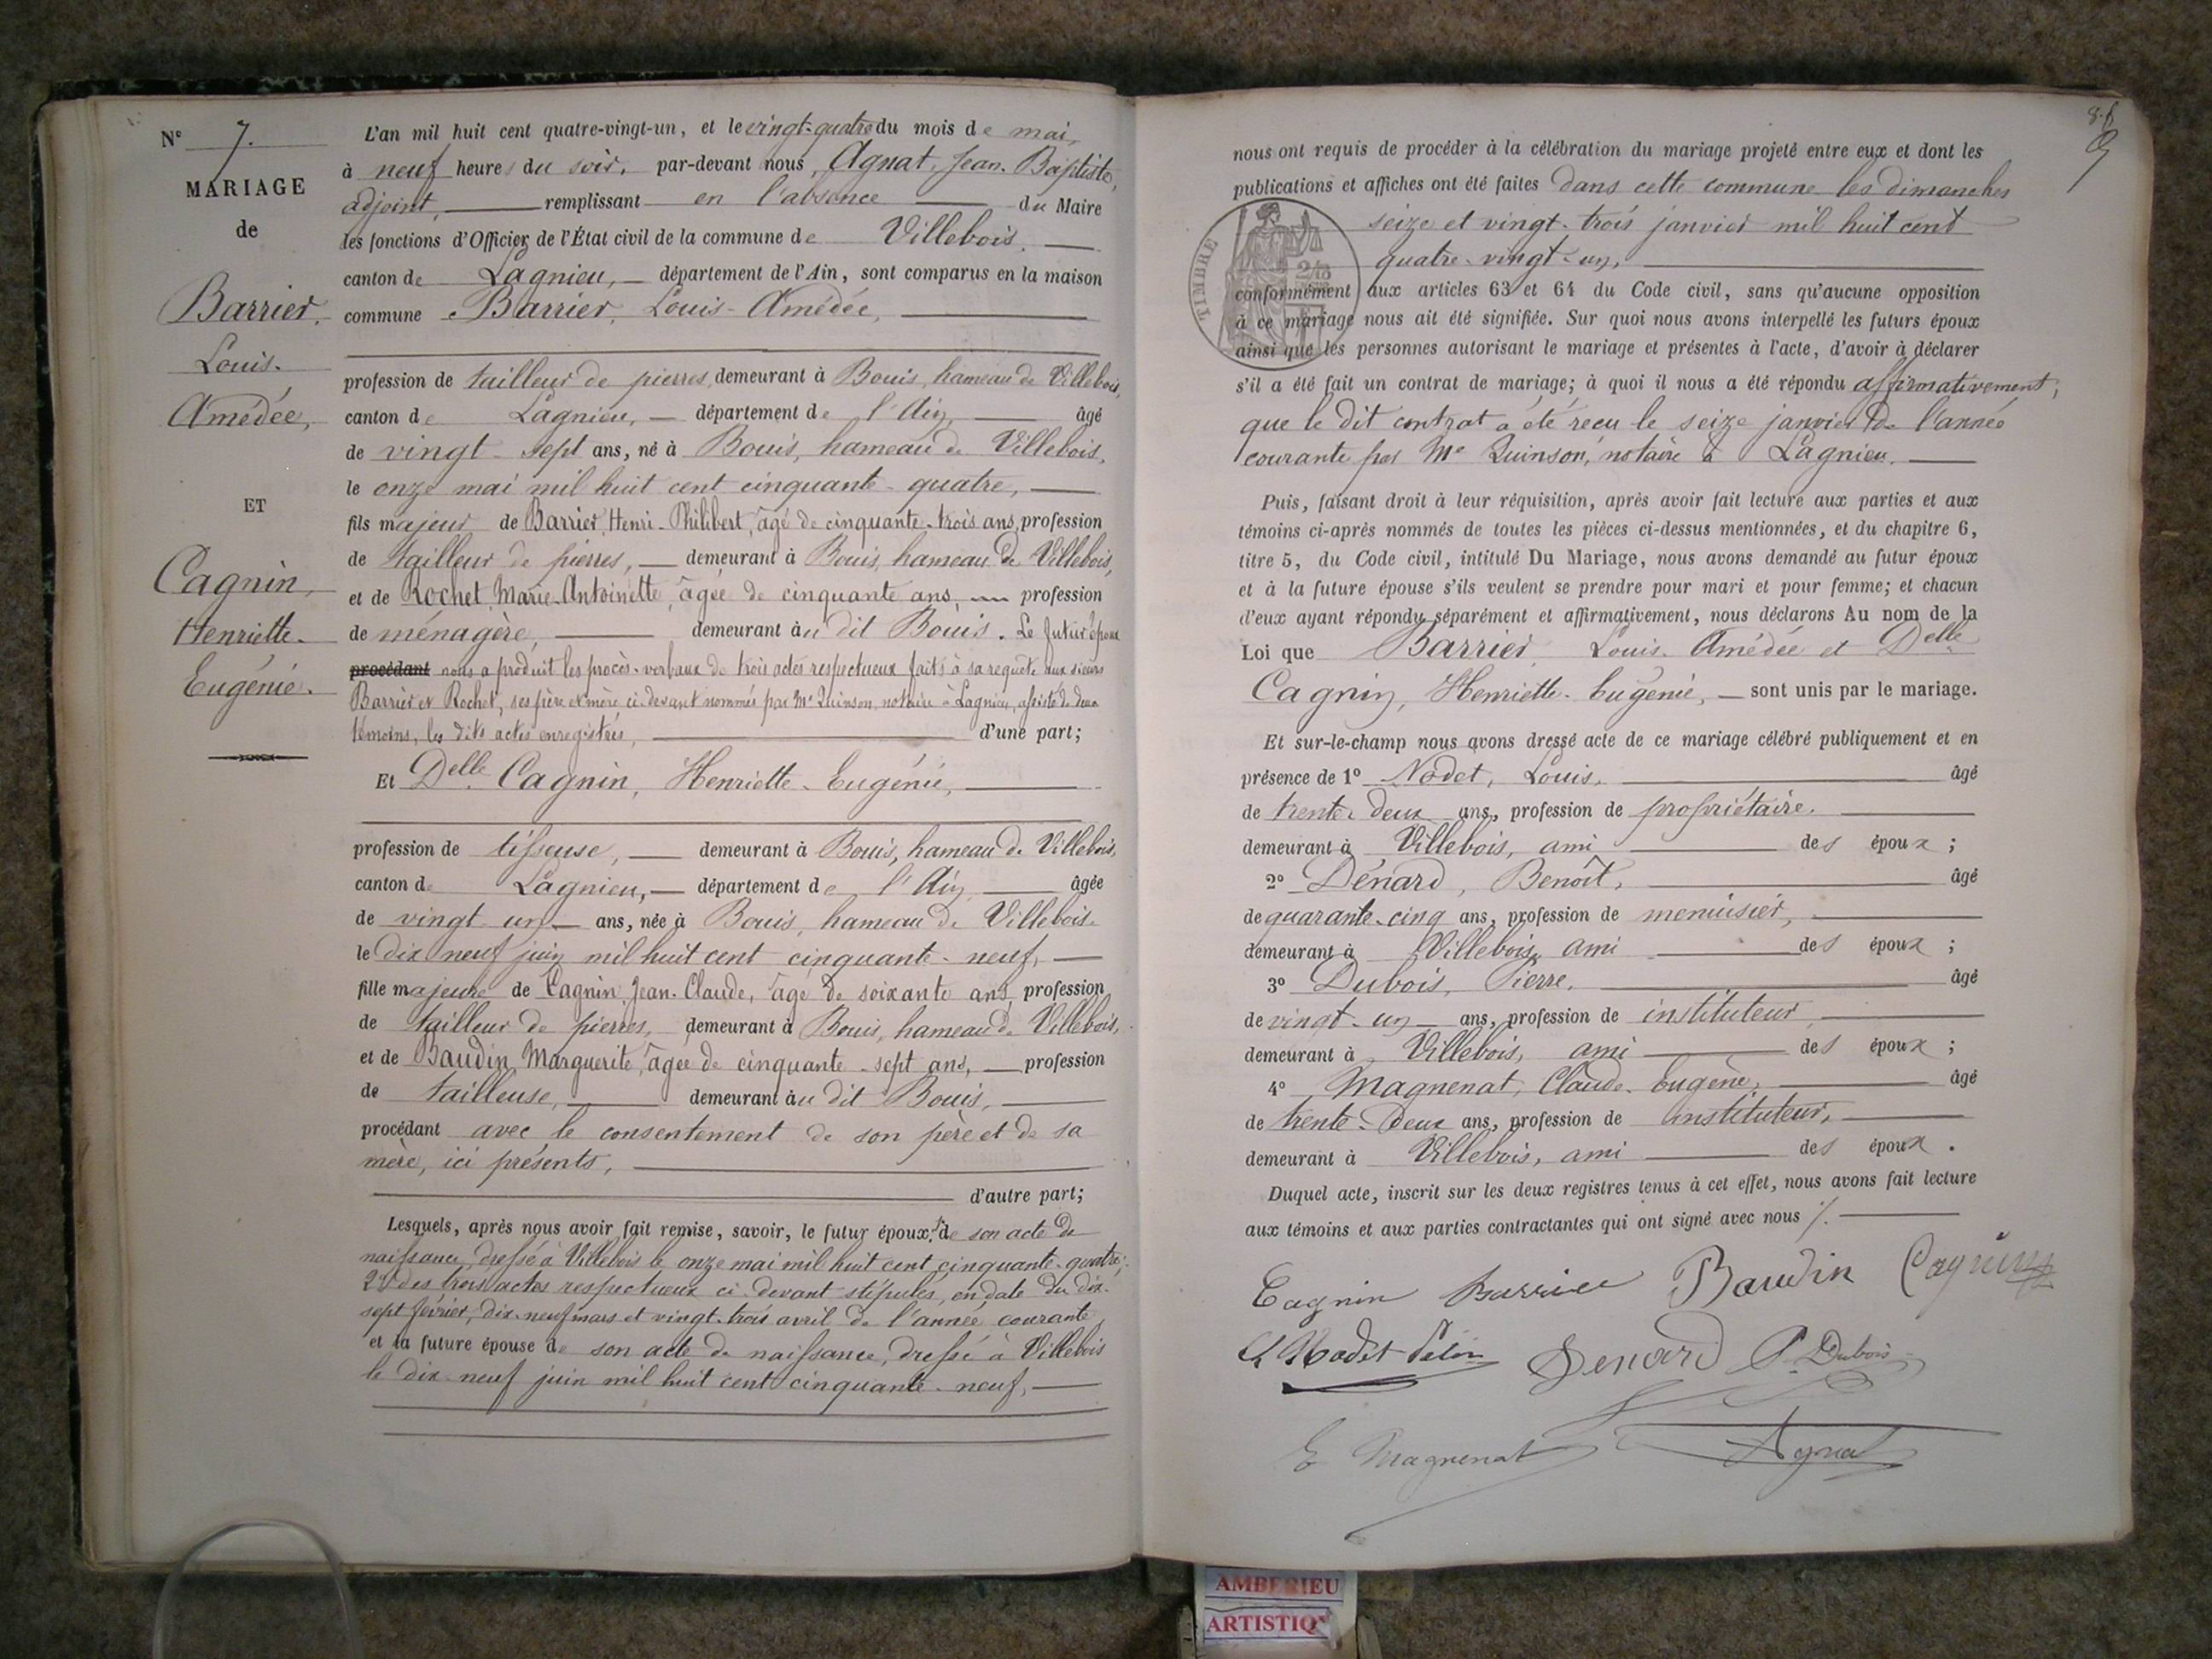 N° 7.
MARIAGE
de
Barrier,
Louis-
Amédée,
ET
Cagnin,
Henriette-
Eugénie.
L'an mil huit cent quatre-vingt-un, et le vingt-quatre du mois de mai,
à neuf heures du soir, par-devant nous, Agnat, Jean-Baptiste,
adjoint, remplissant en l'absence du Maire
les fonctions d'Officier de l'État civil de la commune de Villebois,
canton de Lagnieu, département de l'Ain, sont comparus en la maison
commune Barrier, Louis-Amédée,
profession de tailleur de pierres, demeurant à Bouis, hameau de Villebois,
canton de Lagnieu, département de l'Ain, âgé
de vingt-sept ans, né à Bouis, hameau de Villebois,
le onze mai mil huit cent cinquante-quatre,
fils majeur de Barrier, Henri-Philibert, âgé de cinquante-trois ans, profession
de tailleur de pierres, demeurant à Bouis, hameau de Villebois,
et de Rochet, Marie-Antoinette, âgée de cinquante ans, profession
de ménagère, demeurant au dit Bouis. Le futur époux
procédant nous a produit les procès-verbaux de trois actes respectueux faits à sa requête aux sieurs
Barrier et Rochet, ses père et mère ci-devant nommés par Me Quinson, notaire à Lagnieu, assisté de deux
témoins, les dits actes enregistrés, d'une part;
Et Delle Cagnin, Henriette-Eugénie,
profession de tisseuse, demeurant à Bouis, hameau de Villebois,
canton de Lagnieu, département de l'Ain, âgée
de vingt-un ans, née à Bouis, hameau de Villebois-
le dix-neuf juin mil huit cent cinquante-neuf,
fille majeure de Cagnin, Jean-Claude, âgé de soixante ans, profession
de tailleur de pierres, demeurant à Bouis, hameau de Villebois,
et de Baudin, Marguerite, âgée de cinquante-sept ans, profession
de tailleuse, demeurant au dit Bouis,
procédant avec le consentement de son père et de sa
mère, ici présents,
d'autre part;
Lesquels, après nous avoir fait remise, savoir, le futur époux 1° de son acte de
naissance, dressé à Villebois le onze mai mil huit cent cinquante-quatre;
2° des trois actes respectueux ci-devant stipulés, en date du dix-
sept février, dix-neuf mars et vingt-trois avril de l'année courante,
et la future épouse de son acte de naissance, dressé à Villebois
le dix-neuf juin mil huit cent cinquante-neuf,
9
nous ont requis de procéder à la célébration du mariage projeté entre eux et dont les
publications et affiches ont été faites dans cette commune les dimanches
seize et vingt-trois janvier mil huit cent
quatre-vingt-un,
TIMBRE
conformément aux articles 63 et 64 du Code civil, sans qu'aucune opposition
à ce mariage nous ait été signifiée. Sur quoi nous avons interpellé les futurs époux
ainsi que les personnes autorisant le mariage et présentes à l'acte, d'avoir à déclarer
s'il a été fait un contrat de mariage; à quoi il nous a été répondu affirmativement,
que le dit contrat a été reçu le seize janvier de l'année
courante par Me Quinson, notaire à Lagnieu.
Puis, faisant droit à leur réquisition, après avoir fait lecture aux parties et aux
témoins ci-après nommés de toutes les pièces ci-dessus mentionnées, et du chapitre 6,
titre 5, du Code civil, intitulé Du Mariage, nous avons demandé au futur époux
et à la future épouse s'ils veulent se prendre pour mari et pour femme; et chacun
d'eux ayant répondu séparément et affirmativement, nous déclarons Au nom de la
Loi que Barrier, Louis-Amédée et Delle
Cagnin, Henriette-Eugénie, sont unis par le mariage.
Et sur-le-champ nous avons dressé acte de ce mariage célébré publiquement et en
présence de 1° Nodet, Louis, âgé
de trente-deux ans, profession de propriétaire,
demeurant à Villebois, ami des époux;
2° Dénard, Benoît, âgé
de quarante-cinq ans, profession de menuisier,
demeurant à Villebois, ami des époux;
3° Dubois, Pierre, âgé
de vingt-un ans, profession de instituteur,
demeurant à Villebois, ami des époux;
4° Magnenat, Claude-Eugène, âgé
de trente-deux ans, profession de instituteur,
demeurant à Villebois, ami des époux.
Duquel acte, inscrit sur les deux registres tenus à cet effet, nous avons fait lecture
aux témoins et aux parties contractantes qui ont signé avec nous
Cagnin Barrier Baudin Cagnin
Nodet Denard P. Dubois
E Magnenat Agnat
AMBERIEU
ARTISTIQ